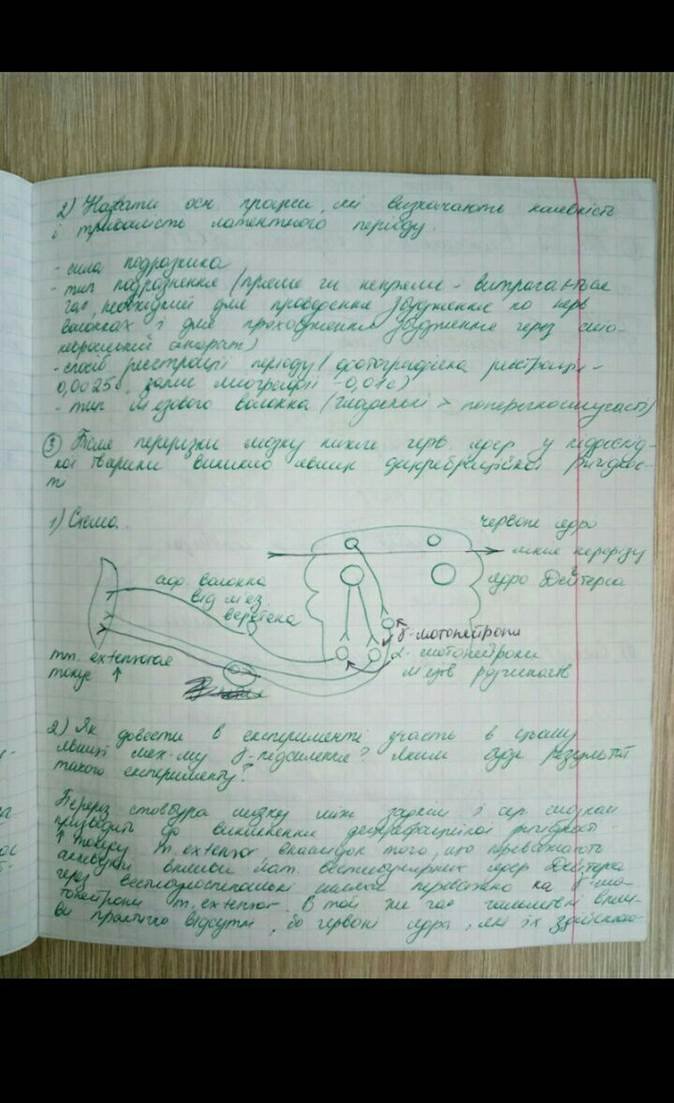 2) Назвати осн. процеси, які визначають наявність
і тривалість латентного періоду.
- сила подразника
- тип подразнення (пряме чи непряме - витрачається
час, необхідний для проведення збудження по нерв.
волокнах і для проходження збудження через
апарат)
- спосіб реєстрації періоду (фотографічна реєстрація -
0,0025с, запис міографії - 0,01с)
- тип м'язового волокна (гладенькі > поперечносмугасті)
③ Після перерізки мозку нижче черв. ядер у піддослід-
ної тварини виникло явище децеребраційної ригіднос-
ті
1) Схема.
червоне ядро
лінія перерізу
ядро Дейтерса
аф. волокна
від м'яз.
веретена
γ-мотонейрони
α-мотонейрони
м'язів розгиначів
mm. extensorae
тонус ↑
2) Як довести в експерименті участь в цьому
явищі мех-му γ-підсилення? Яким буде результат
такого експерименту?
Переріз стовбура мозку між заднім і сер. мозком
призводить до виникнення децеребраційної ригідності -
↑ тонусу m. extensor внаслідок того, що переважають
впливи лат. вестибулярних ядер Дейтерса
через вестибулоспінальні шляхи переважно на γ-мо-
тонейрони m. extensor. В той же час гальмівні впли-
ви практично відсутні, бо червоні ядра, які їх здійснюю-